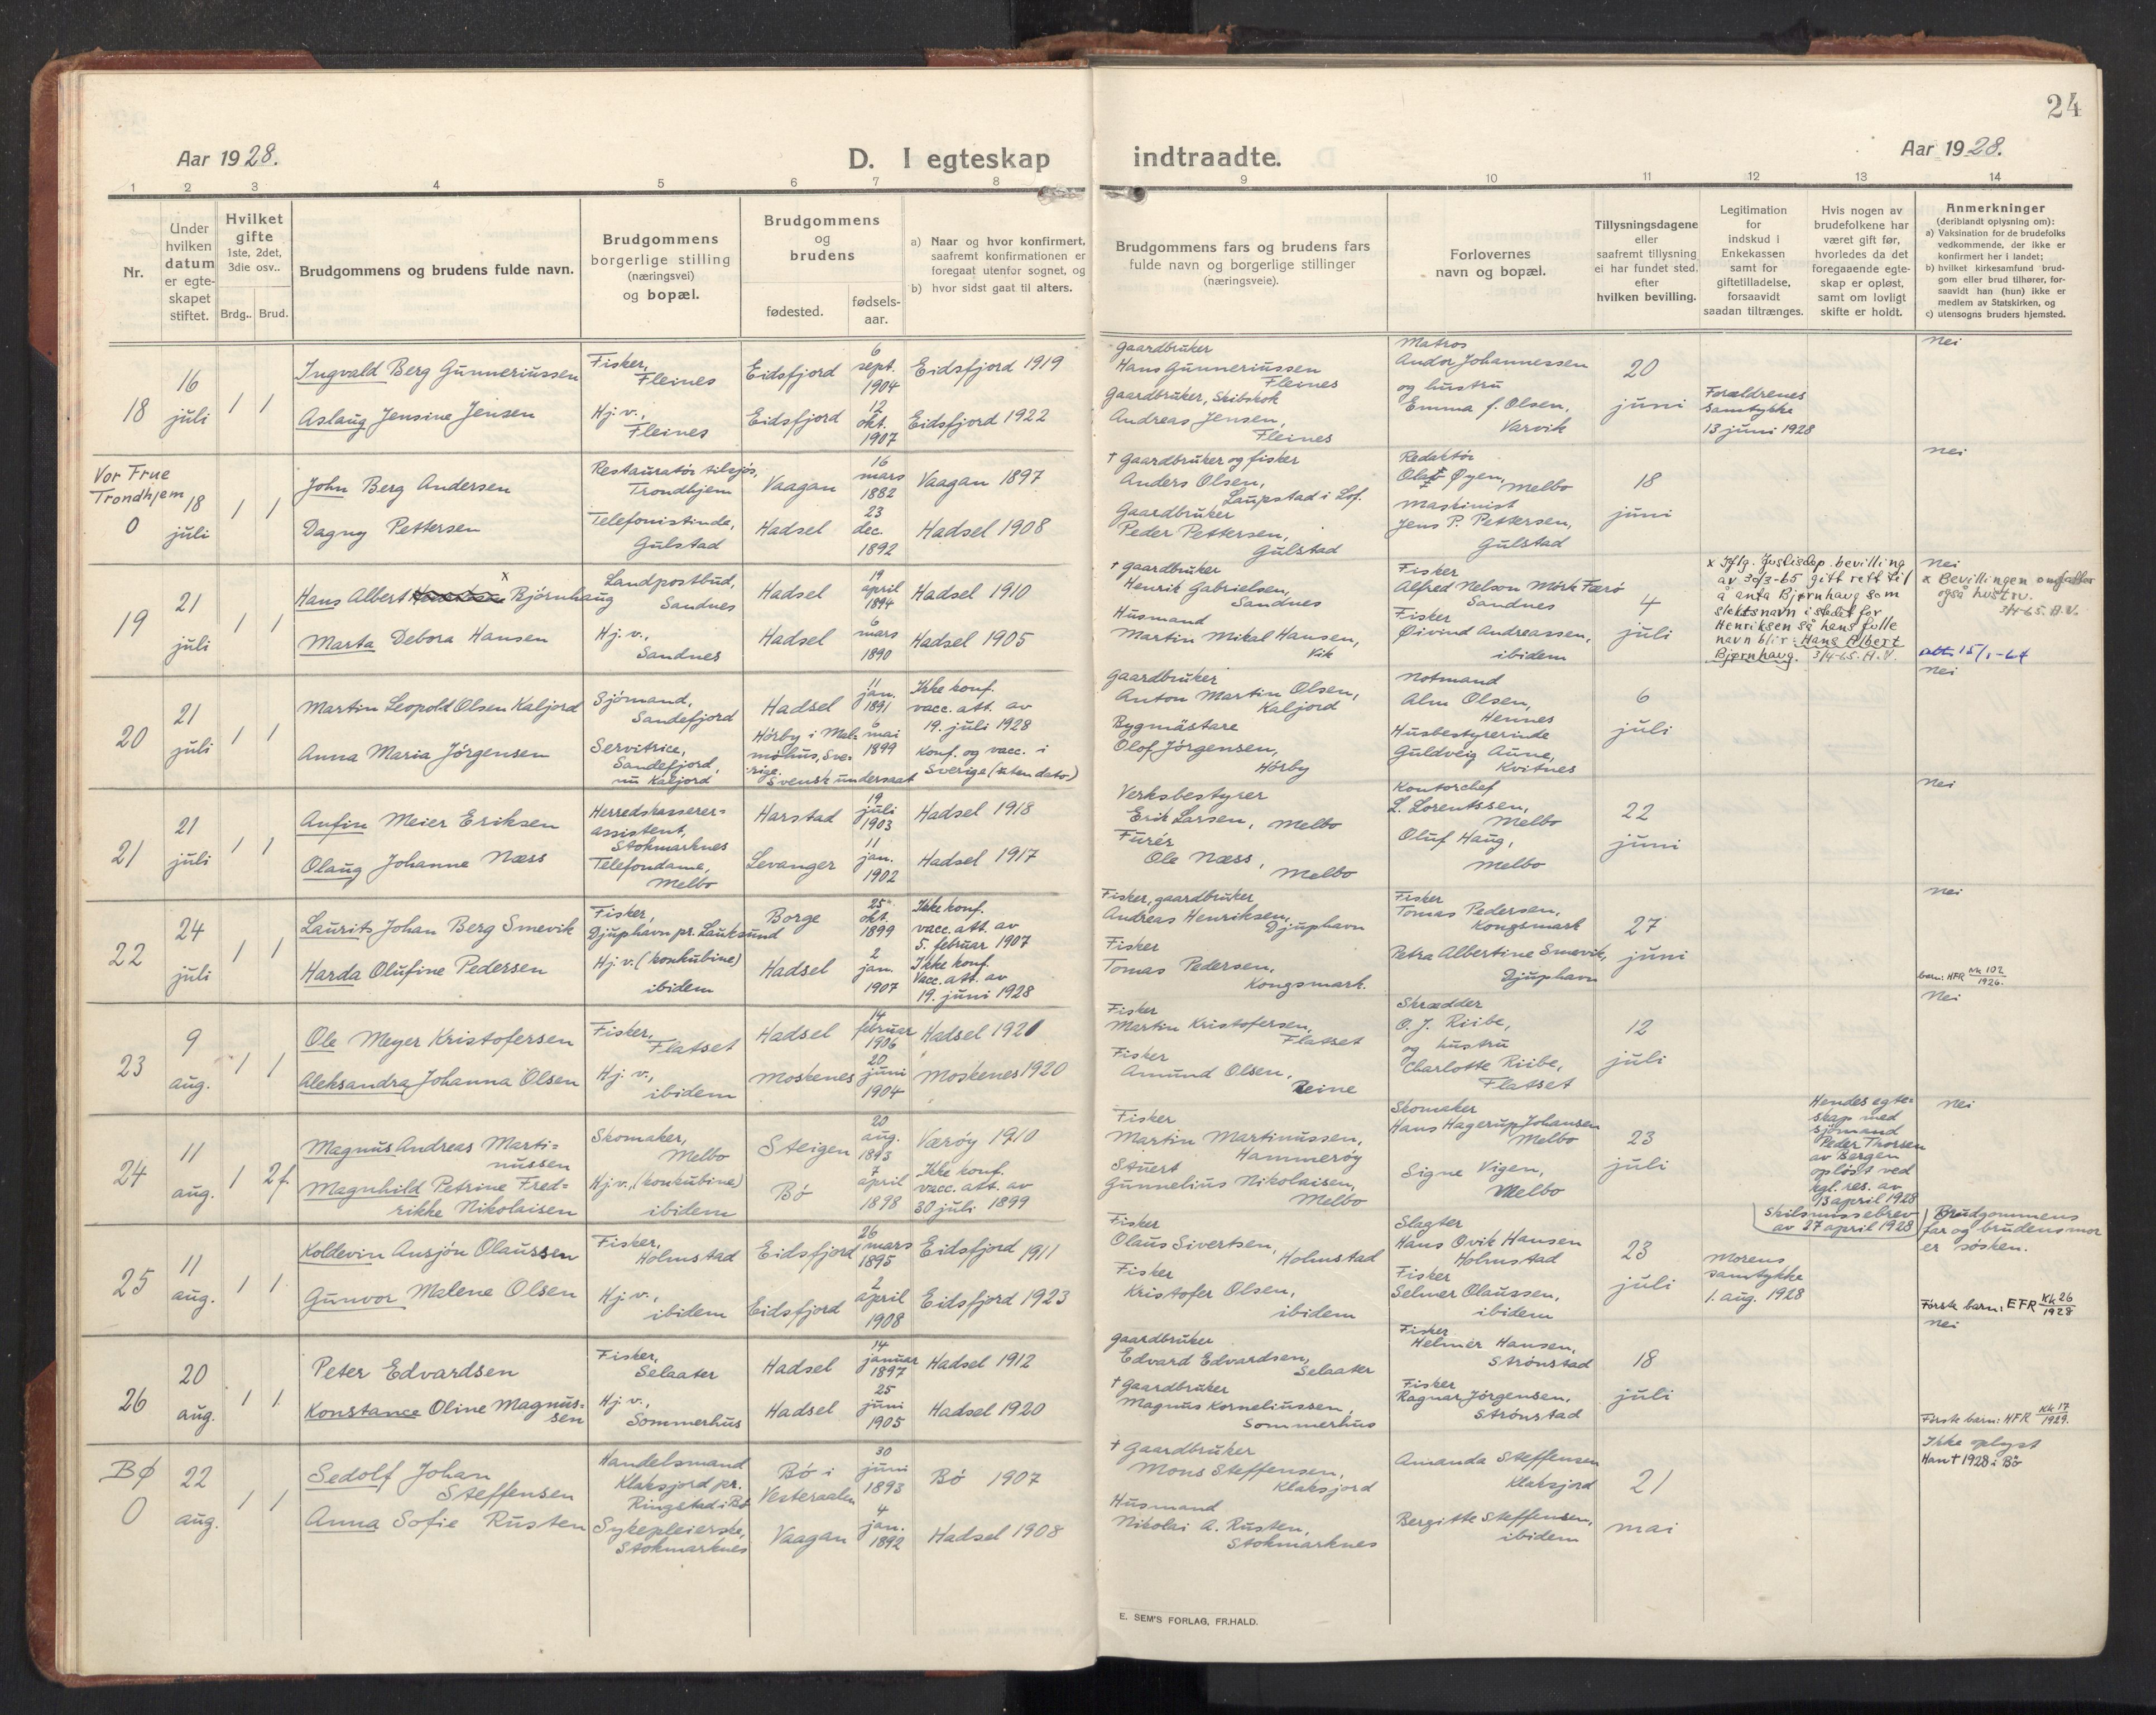 24
Aar 1928.
D. I egteskap indtraadte.
Aar 1928.
1 2 3 4 5 6 7 8 9 10 11 12 13 14
Nr.
Under hvilken datum er egte-skapet stiftet.
Hvilket gifte 1ste, 2det, 3die osv..
Brdg.. Brud.
Brudgommens og brudens fulde navn.
Brudgommens borgerlige stilling (næringsvei) og bopæl.
Brudgommens og brudens
fødested.
fødsels-aar.
a) Naar og hvor konfirmert, saafremt konfirmationen er foregaat utenfor sognet, og
b) hvor sidst gaat til alters.
Brudgommens fars og brudens fars fulde navn og borgerlige stillinger (næringsveie).
Forlovernes navn og bopæl.
Tillysningsdagene eller saafremt tillysning ei har fundet sted, efter hvilken bevilling.
Legitimation for indskud i Enkekassen samt for giftetilladelse, forsaavidt saadan tiltrænges.
Hvis nogen av brudefolkene har været gift før, hvorledes da det foregaaende egte-skap er opløst, samt om lovligt skifte er holdt.
Anmerkninger (deriblandt oplysning om):
a) Vaksination for de brudefolks vedkommende, der ikke er konfirmert her i landet;
b) hvilket kirkesamfund brud-gom eller brud tilhører, for-saavidt han (hun) ikke er medlem av Statskirken, og
c) utensogns bruders hjemsted.
18 16 juli 1 1
Ingvald Berg Gunneriussen Fisker, Fleines Eidsfjord 6 sept. 1904 Eidsfjord 1919
Aslaug Jensine Jensen Hj.v., Fleines Eidsfjord 12 okt. 1907 Eidsfjord 1922
Gaardbruker Hans Gunneriussen Fleines
Gaardbruker, Skibskok Andreas Jensen, Fleines
Matros Andor Johannessen og hustru Emma f. Olsen, Varvik
20 juni
Forældrenes samtykke 13 juni 1928
Nei
Vor Frue Trondhjem
0 18 juli 1 1
John Berg Andersen Restauratør tilsjøs, Trondhjem Vaagan 16 mars 1882 Vaagan 1897
Dagny Pettersen Telefonistinde, Gulstad Hadsel 23 dec. 1892 Hadsel 1908
† Gaardbruker og fisker Anders Olsen, Laupstad i Lof.
Gaardbruker Peder Pettersen, Gulstad
Redaktør Olaf Øyen, Melbo
Maskinist Jens P. Pettersen, Gulstad
18 juni
Nei
19 21 juli 1 1
Hans Albert x Bjørnhaug Landpostbud, Sandnes Hadsel 19 april 1894 Hadsel 1910
Marta Debora Hansen Hj.v., Sandnes Hadsel 6 mars 1890 Hadsel 1905
† Gaardbruker Henrik Gabrielsen, Sandnes
Husmand Martin Mikal Hansen, Vik
Fisker Alfred Nelson Mörk Færö Sandnes
Fisker Øivind Andreassen, ibidem
4 juli
x Iflg. Justisdep. bevilling
av 30/3-65 gitt rett til
å anta Bjørnhaug som
slektsnavn istedet for
Henriksen så hans fulle
navn blir: Hans Albert
Bjørnhaug. 3/4-65. A.V.
Nei
x Bevillingen omfatter
også hustru.
3/4-65. A.V.
att. 15/1-64
20 21 juli 1 1
Martin Leopold Olsen Kaljord Sjömand, Sandefjord Hadsel 11 jan. 1891 Ikke konf. vacc. att. av 19. juli 1928
Anna Maria Jörgensen Servitrice, Sandefjord, nu Kaljord Hörby i Mal-möhus, Sve-rige. Svensk undersaat 6 mai 1899 Konf. og vacc. i Sverige (uten dato)
Gaardbruker Anton Martin Olsen, Kaljord
Bygmästare Olof Jörgensen, Hörby
Notmand Alm Olsen, Hennes
Husbestyrerinde Guldveig Aune, Kvitnes
6 juli
Nei
21 21 juli 1 1
Anfin Meier Eriksen Herredskasserer-assistent, Stokmarknes Harstad 19 juli 1903 Hadsel 1918
Olaug Johanne Næss Telefondame, Melbo Levanger 11 jan. 1902 Hadsel 1917
Verksbestyrer Erik Larsen, Melbo
Furér Ole Næss, Melbo
Kontorchef L. Lorentssen, Melbo
Oluf Haug, Melbo
22 juni
Nei
22 24 juli 1 1
Laurits Johan Berg Smevik Fisker, Djuphavn pr. Lauksund Borge 25 okt. 1899 Ikke konf. vacc. att. av 5. februar 1907
Harda Olufine Pedersen Hj.v. (konkubine) ibidem Hadsel 2 jan. 1907 Ikke konf. Vacc. att. av 19. juni 1928
Fisker, gaardbruker Andreas Henriksen, Djuphavn
Fisker Tomas Pedersen, Kongsmark.
Fisker Tomas Pedersen, Kongsmark
Petra Albertine Smevik, Djuphavn
27 juni
Nei
barn: HFR Kk 102/1926.
23 9 aug. 1 1
Ole Meyer Kristofersen Fisker, Flatset Hadsel 14 februar 1906 Hadsel 1921
Aleksandra Johanna Olsen Hj.v., ibidem Moskenes 20 juni 1904 Moskenes 1920
Fisker Martin Kristofersen, Flatset
Fisker Amund Olsen, Reine
Skrædder O. J. Riibe, og hustru Charlotte Riibe, Flatset
12 juli
Nei
24 11 aug. 1 2 f.
Magnus Andreas Marti-nussen Skomaker, Melbo Steigen 20 aug. 1893 Værøy 1910
Magnhild Petrine Fred-rikke Nikolaisen Hj.v., (konkubine) ibidem Bö 7 april 1898 Ikke konf. vacc. att. av 30 juli 1899
Fisker Martin Martinussen, Hammerøy
Stuert Gunnelius Nikolaisen, Melbo
Skomaker Hans Hagerup Johansen Melbo
Signe Vigen, Melbo
23 juli
Hendes egte-skap med sjömand Peder Thorsen av Bergen opløst ved kgl. res. av 13 april 1928
skilsmissebrev av 27 april 1928
Nei
25 11 aug. 1 1
Koldevin Ansjön Olaussen Fisker, Holmstad Eidsfjord 26 mars 1895 Eidsfjord 1911
Gunvor Malene Olsen Hj.v., ibidem Eidsfjord 2 april 1908 Eidsfjord 1923
Fisker Olaus Sivertsen, Holmstad
Fisker Kristofer Olsen, ibidem
Slagter Hans Ovik Hansen Holmstad
Fisker Selmer Olaussen, ibidem
23 juli
Morens samtykke 1. aug. 1928
Brudgommens far og brudens mor er søsken.
Første barn: EFR Kk 26/1928
26 20 aug. 1 1
Peter Edvardsen Fisker, Selaater Hadsel 14 januar 1897 Hadsel 1912
Konstance Oline Magnus-sen Hj.v., Sommerhus Hadsel 25 juni 1905 Hadsel 1920
Gaardbruker Edvard Edvardsen, Selaater
† Gaardbruker Magnus Korneliussen, Sommerhus
Fisker Helmer Hansen, Strönstad
Fisker Ragnar Jörgensen, Strönstad
18 juli
Nei
Første barn: HFR Kk 17/1929.
BØ
0 22 aug. 1 1
Sedolf Johan Steffensen Handelsmand Klaksjord pr. Ringstad i Bø Bö i Vesteraalen 30 juni 1893 Bö 1907
Anna Sofie Rusten Sykepleierske, Stokmarknes Vaagan 4 jan. 1892 Hadsel 1908
† Gaardbruker Mons Steffensen, Klaksjord
Husmand Nikolai A. Rusten, Stokmarknes
Amanda Steffensen Klaksjord
Bergitte Steffensen, ibidem
21 mai
Ikke oplyst
Han † 1928 i Bö
E. SEM'S FORLAG, FR.HALD.